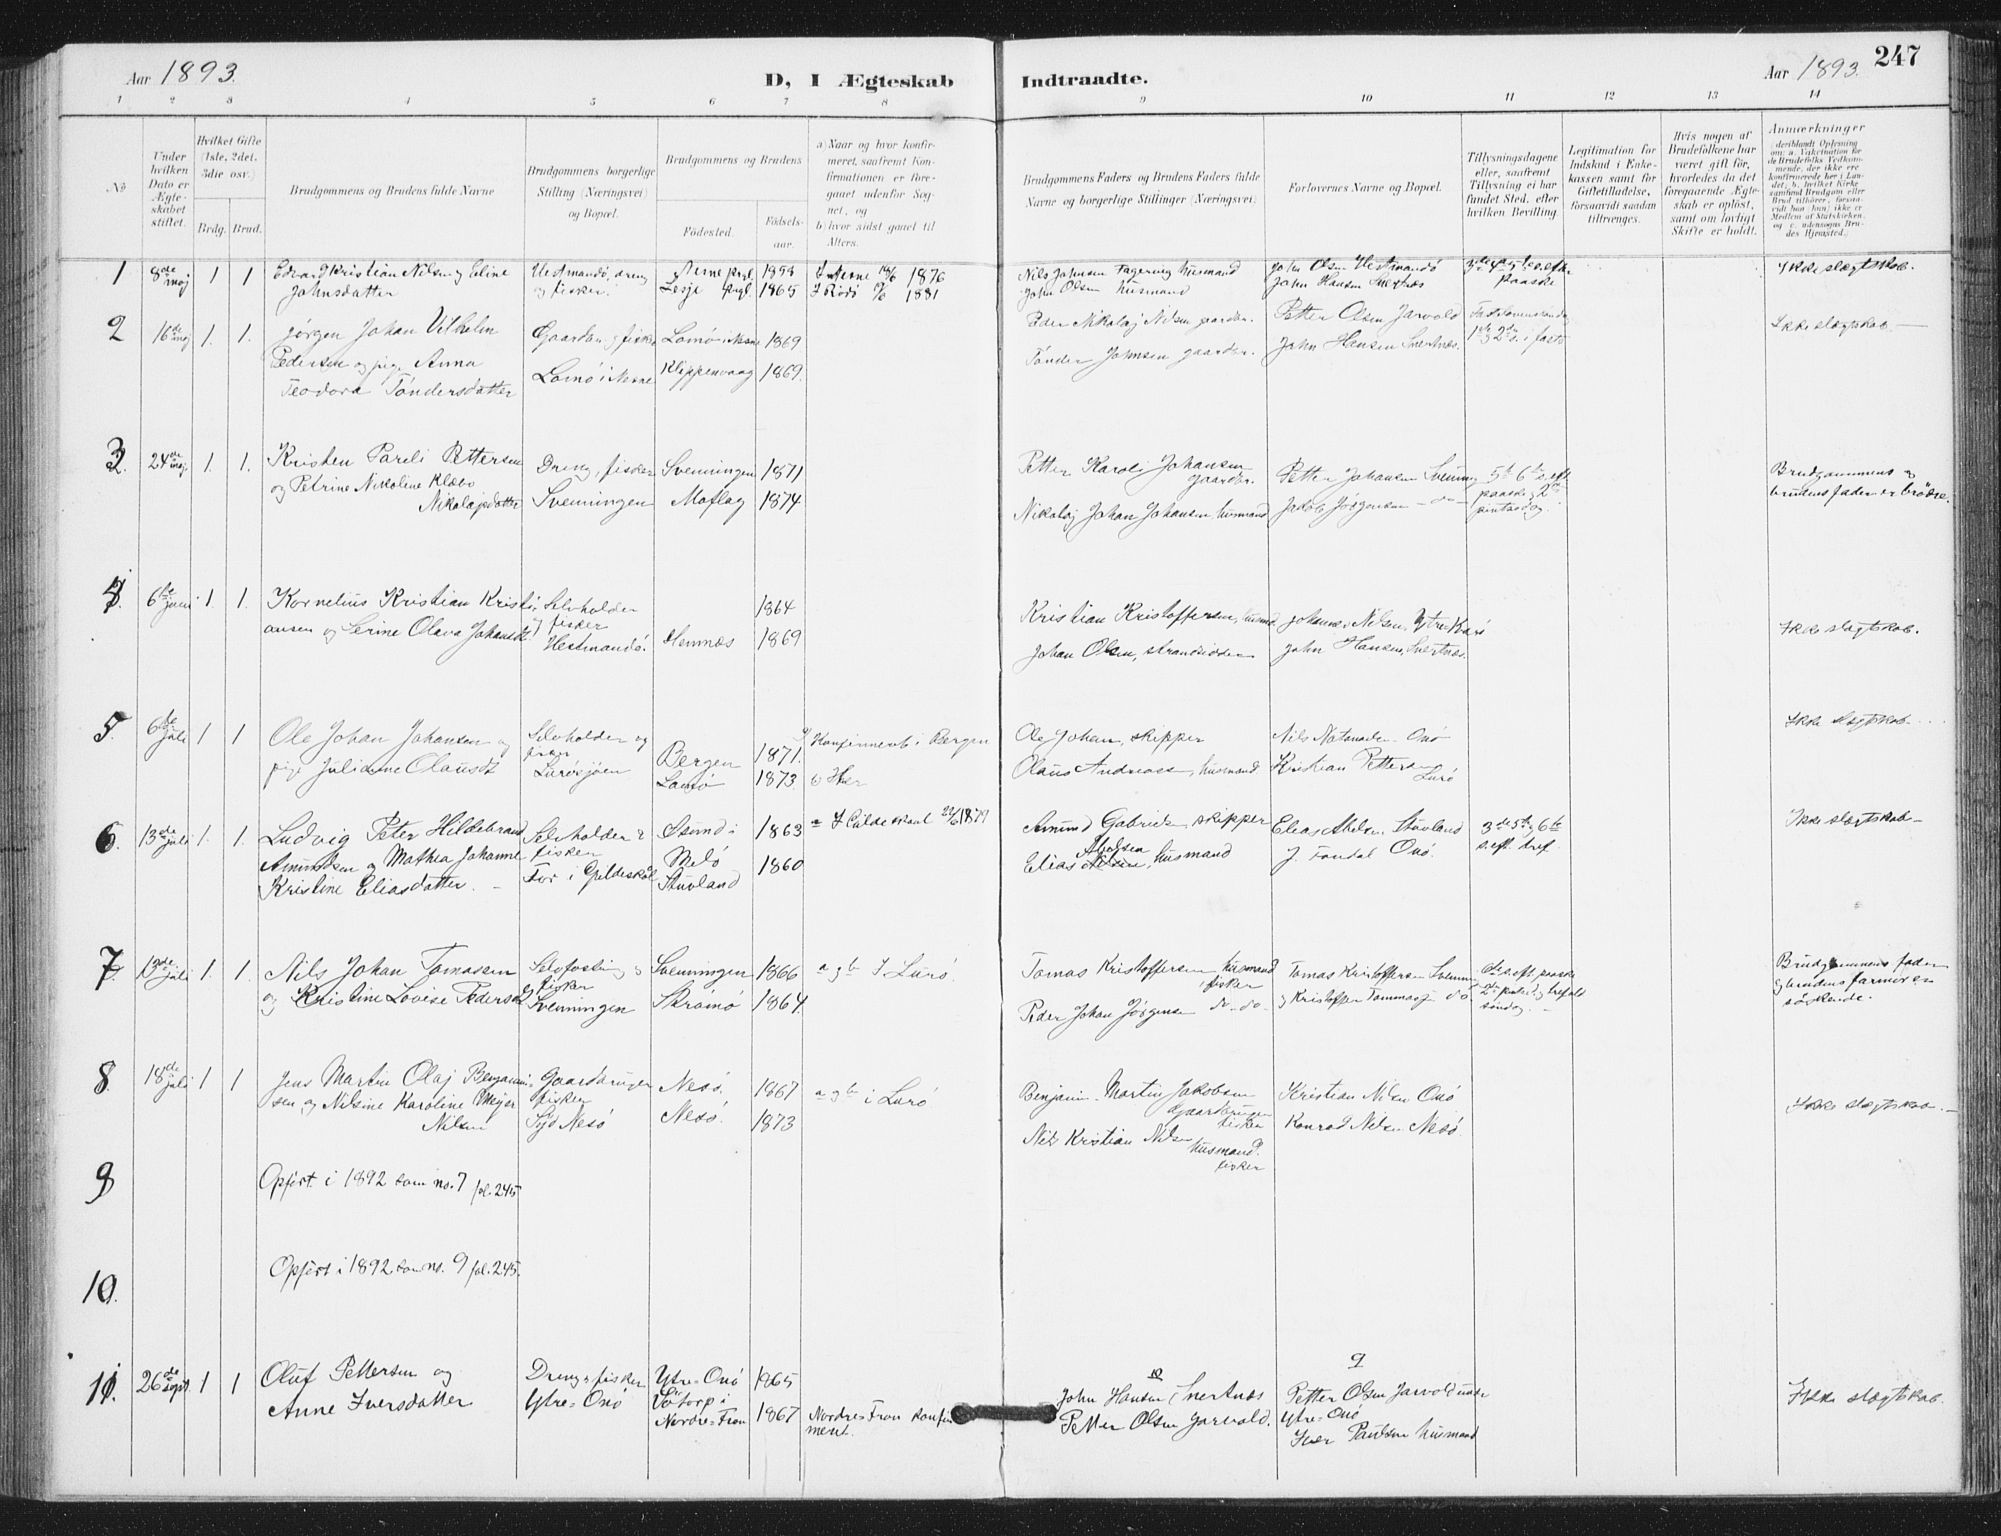 Aar 1893.
D, I Ægteskab
Indtraadte.
Aar 1893.
247
1 2 3 4 5 6 7 8
9 10 11 12 13 14
No
Under hvilken Dato er Ægteskabet stiftet.
Hvilket Gifte (1ste, 2det, 3die osv.)
Brdg. Brud.
Brudgommens og Brudens fulde Navne
Brudgommens borgerlige Stilling (Næringsvei) og Bopæl.
Brudgommens og Brudens
Fødested.
Fødsels-aar.
a) Naar og hvor konfirmeret, saafremt Konfirmationen er foregaaet udenfor Sognet, og
b) hvor sidst gaaet til Alters.
Brudgommens Faders og Brudens Faders fulde Navne og borgerlige Stillinger (Næringsvei)
Forlovernes Navne og Bopæl.
Tillysningsdagene eller, saafremt Tillysning ei har fundet Sted, efter hvilken Bevilling
Legitimation for Indskud i Enkekassen samt for Giftetilladelse, forsaavidt saadan tiltrænges.
Hvis nogen af Brudefolkene har været gift før, hvorledes da det foregaaende Ægteskab er opløst, samt om lovligt Skifte er holdt.
Anmærkninger
(deriblandt Oplysning om: a. Vakcination for de Brudefolks Vedkommende, der ikke ere konfirmerede her i Landet; b. hvilket Kirkesamfund Brudgom eller Brud tilhører, forsaavidt han (hun) ikke er Medlem af Statskirken, og c. udensogns Brudes Hjemsted.)
1 8de maj 1 1 Edvard Kristian Nilsen og Eline
Johnsdatter
Hestmandö, dreng
og fisker.
Nesne prgl. 1858
Lesje prgl. 1865
I Nesne 18/6 1876
I Rödö 1881
Nils Johnsen Fagervig husmand
John Olsen husmand
John Olsen Hestmandö
John Hansen Snertnæs
3de 4de 5te s. efter
paaske
Ikke slægtskab.
2 16de maj 1. 1. Jørgen Johan Vilhelm
Pedersen og pige Anna
Teodora Töndersdatter
Gaardm. og fisker
Lomö i Nesne
Lomö i Nesne 1869
Klippenvaag 1869.
Peder Nikolaj Nilsen gaardbr.
Tönder Johnsen gaardbr.
Petter Olsen Jarvold
John Hansen Snertnæs.
1ste 2den s. i faste
Ikke slægtskab. —
3. 24de maj. 1. 1. Kristen Pareli Pettersen
og Petrine Nikoline Klæbo
Nikolajsdatter
Dreng, fisker
Svenningen
Svenningen 1871
Moflag 1874
Petter Kareli Johansen
gaardbr.
Nikolaj Johan Johansen, husmand
Petter Johansen Svenning
Jakob Jørgensen — do —
5te 6te s. eft.
paaske, 2den
pintsedag.
Brudgommens og
brudens fader er brödre.
4. 6te juni 1. 1. Kornelius Kristian Kristi-
ansen og Serine Olava Johansdt.
Selvholder
og fisker
Hestmandö.
1864
Hemnæs 1869
Kristian Kristoffersen, husmd.
Johan Olsen, strandsidder
Johannes Nilsen, Ytre-Kvarö
John Hansen, Snertnæs.
Ikke slægtskab.
5. 6te juli 1 1 Ole Johan Johansen og
pige Julianne Olausdt
Selvholder og
fisker
Lurösjöen
Bergen 1871.
Lamö 1873.
a Konfirmert i Bergen
b Her
Ole Johan, skipper
Olaus Andreas, husmand
Nils Natanaels. Onö
Kristian Pettersen
Lurö
Ikke slægtskab
6. 13de juli 1. 1. Ludvig Peter Hildebrand
Amundsen og Mathea Johanne
Kristine Eliasdatter. —
Selvholder &
fisker
For i Gildeskål
Øsund i 1863
Melö
Stuvland 1860
a I Gildeskaal 22/6 1879
Amund Gabriels. skipper
Elias Abelsen, husmand
Elias Abelsen Stuvland
J. Fondal Onö.
3de 5te og 6te
s. eft. tref.
Ikke slægtskab —
7. 13de juli 1. 1. Nils Johan Tomassen
og Kristine Lovise Pedersdt
Selvfosting og
fisker
Svenningen
Svenningen 1866
Skramö 1864.
a og b I Lurö.
Tomas Kristoffersen husmand
, fisker
Peder Johan Jörgensen do — do —
Tomas Kristoffersen Svenning
og Kristoffer Tommasj. do
s. eft. paaske
2den pintsed. og trefold.
söndag. —
Brudgommens fader
og brudens farmor er
söskende.
8. 18de juli 1 1 Jens Martin Olaj Benjamin-
sen og Nilsine Karoline Mejer
Nilsen
Gaardbruger
fisker
Syd Nesö
Nesö. 1867
Nesö. 1873
a og b i Lurö
Benjamin Martin Jakobsen
Gaardbruger
fisker
Nils Kristian Nilsen
husmand
fisker
Kristian Nilsen Onö
Konrad Nilsen Nesö.
Ikke slægtskab. —
9 Opfört i 1892 som no. 7 fol. 245
10. Opfört i 1892 som no. 9 fol. 245.
11. 26de sept. 1 1 Oluf Pettersen og
Anne Iversdatter
Dreng, fisker
Ytre-Onö
Ytre-Onö 1865
i
Nordre-Fron 1867
Nordre-Fron konfir
ment.
10
John Hansen Snertnæs
Petter Olsen Jarvold.
9
Petter Olsen Jarvold
Ytre-Onö
Iver Paulsen husmand
Ikke slægtskab.